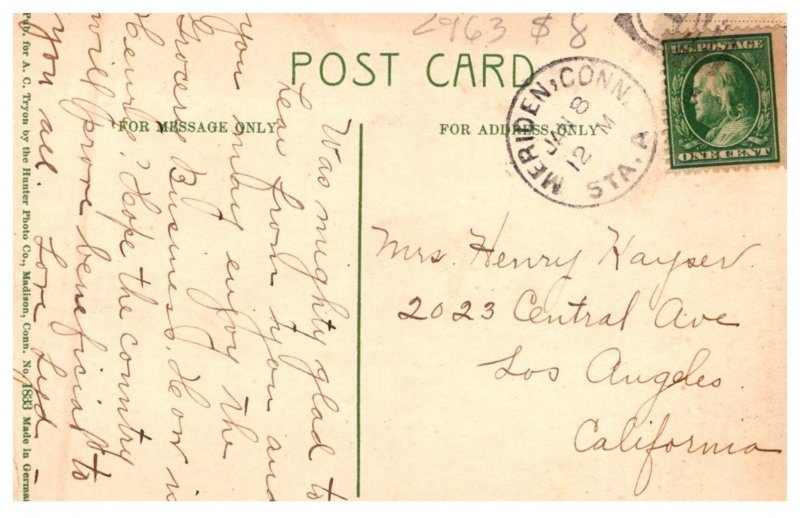 2963 $8
POST CARD
FOR MESSAGE ONLY
FOR ADDRESS ONLY
MERIDEN, CONN.
JAN 8
12 M
STA. A
U.S. POSTAGE
ONE CENT
Was mighty glad to
hear from you and
you may enjoy the
Grocery Business. How is
Henry? Hope the country
will prove beneficial to
you all. Love
Mrs. Henry Kayser
2023 Central Ave
Los Angeles
California
Pub. for A. C. Tryon by the Hunter Photo Co., Madison, Conn. No. 1833 Made in German